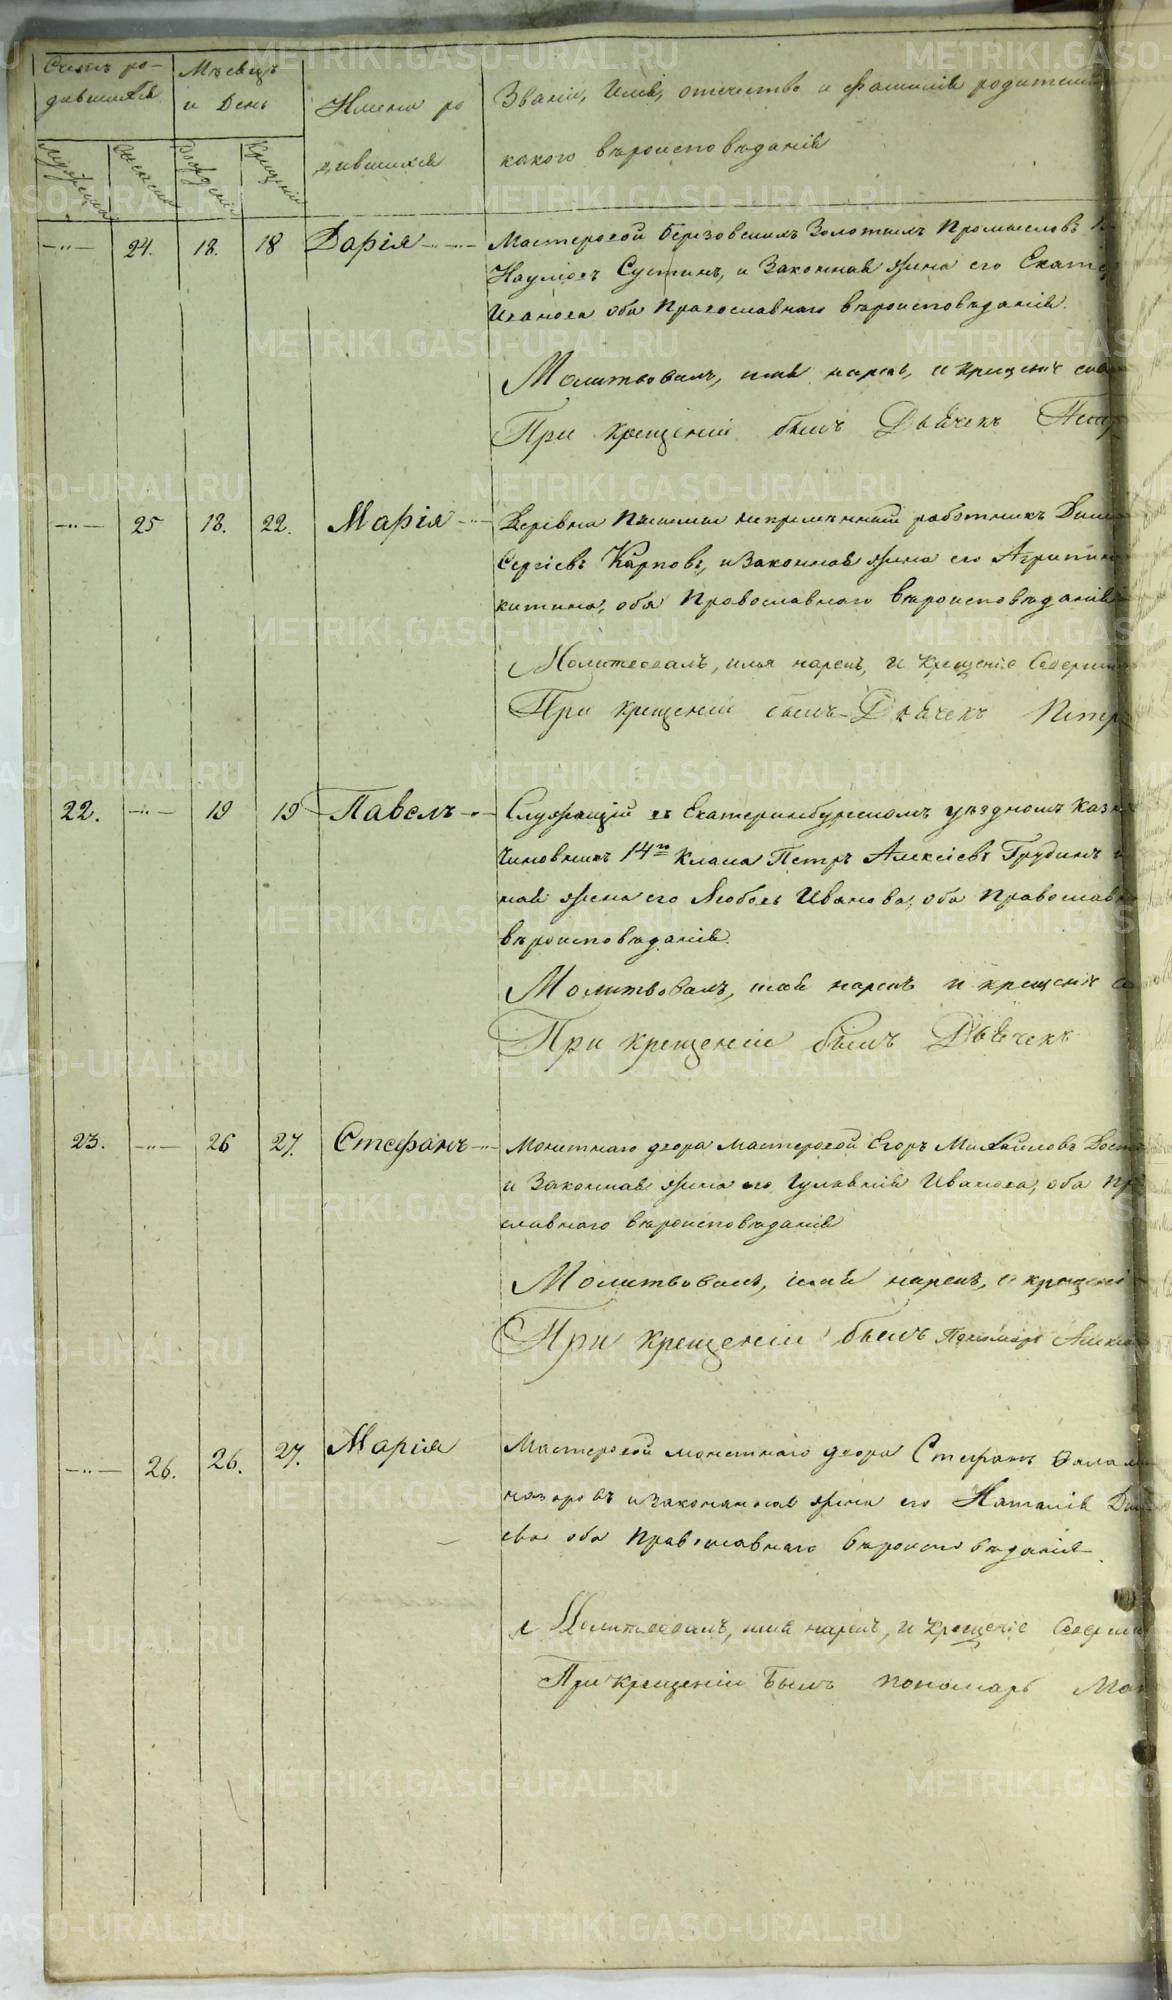 Счетъ ро-
дившихся
Мѣсяцъ
и День
Имена ро
дившихся
Званіе, Имя, отечество и фамилія родителей
какого вѣроисповѣданія
Мужеска
Женска
Рожденія
Крещенія
24. 18. 18 Дарія Мастеровой Березовскихъ Золотыхъ Промысловъ
Наумовъ Сустинъ, и Законная жена его Екате
Иванова оба Православнаго вѣроисповѣданія.
Молитвовалъ, имя нарекъ, и крещеніе сов
При крещеніи былъ Дьячекъ Петр
25 18. 22. Марія Деревни непремѣнный работникъ
Сергѣевъ Карповъ, и Законная жена его Агрипина
китина, оба Православнаго вѣроисповѣданія
Молитвовалъ, имя нарекъ, и крещеніе Соверши
При крещеніи былъ Дьячекъ Петр
22. 19 19 Павелъ Служащій въ Екатеринбургскомъ уѣздномъ Казн
Чиновникъ 14го класа Петръ Алексѣевъ Грудинъ и
ная жена его Любовь Иванова, оба Православн
вѣроисповѣданія.
Молитвовалъ, имя нарекъ и крещеніе со
При крещеніи былъ Дьячекъ
23. 26 27. Стефанъ Монетнаго двора мастеровой Егоръ Михайловъ
и Законная жена его Иванова, оба Пр
славнаго вѣроисповѣданія
Молитвовалъ, имя нарекъ, и крещені
При крещеніи былъ Пономарь
26. 26. 27. Марія Мастеровой монетнаго двора Стефанъ
и законная жена его Наталія
ева оба Православнаго вѣроисповѣданія
Молитвовалъ, имя нарекъ, и крещеніе Соверши
При крещеніи былъ пономарь
METRIKI.GASO-URAL.RU